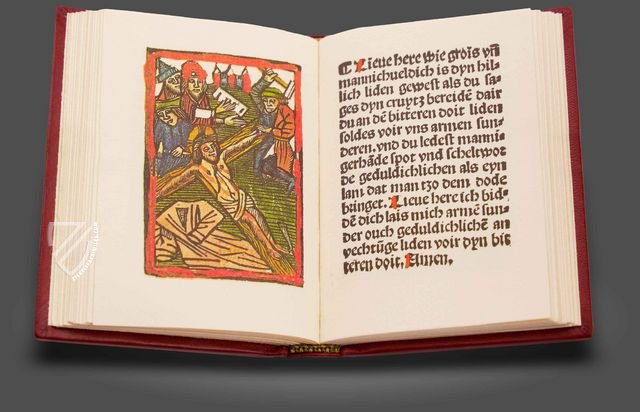 Lieue here wie grois vn̄
mannichueldich is dyn hil⸗
lich liden gewest als du sa⸗
ges dyn cruytz bereidē dair
du an dē bitteren doit liden
soldes voir vns armen sun⸗
deren. vnd du ledest manni⸗
gerhāde spot vnd scheltwot
de geduldichlichen als eyn
lam dat man tzo dem dode
brĩnget. Lieue here ich bid⸗
dē dich lais mich armē sun⸗
der ouch geduldichlichē an
vechtūge liden voir dyn bit
teren doit. Amen.